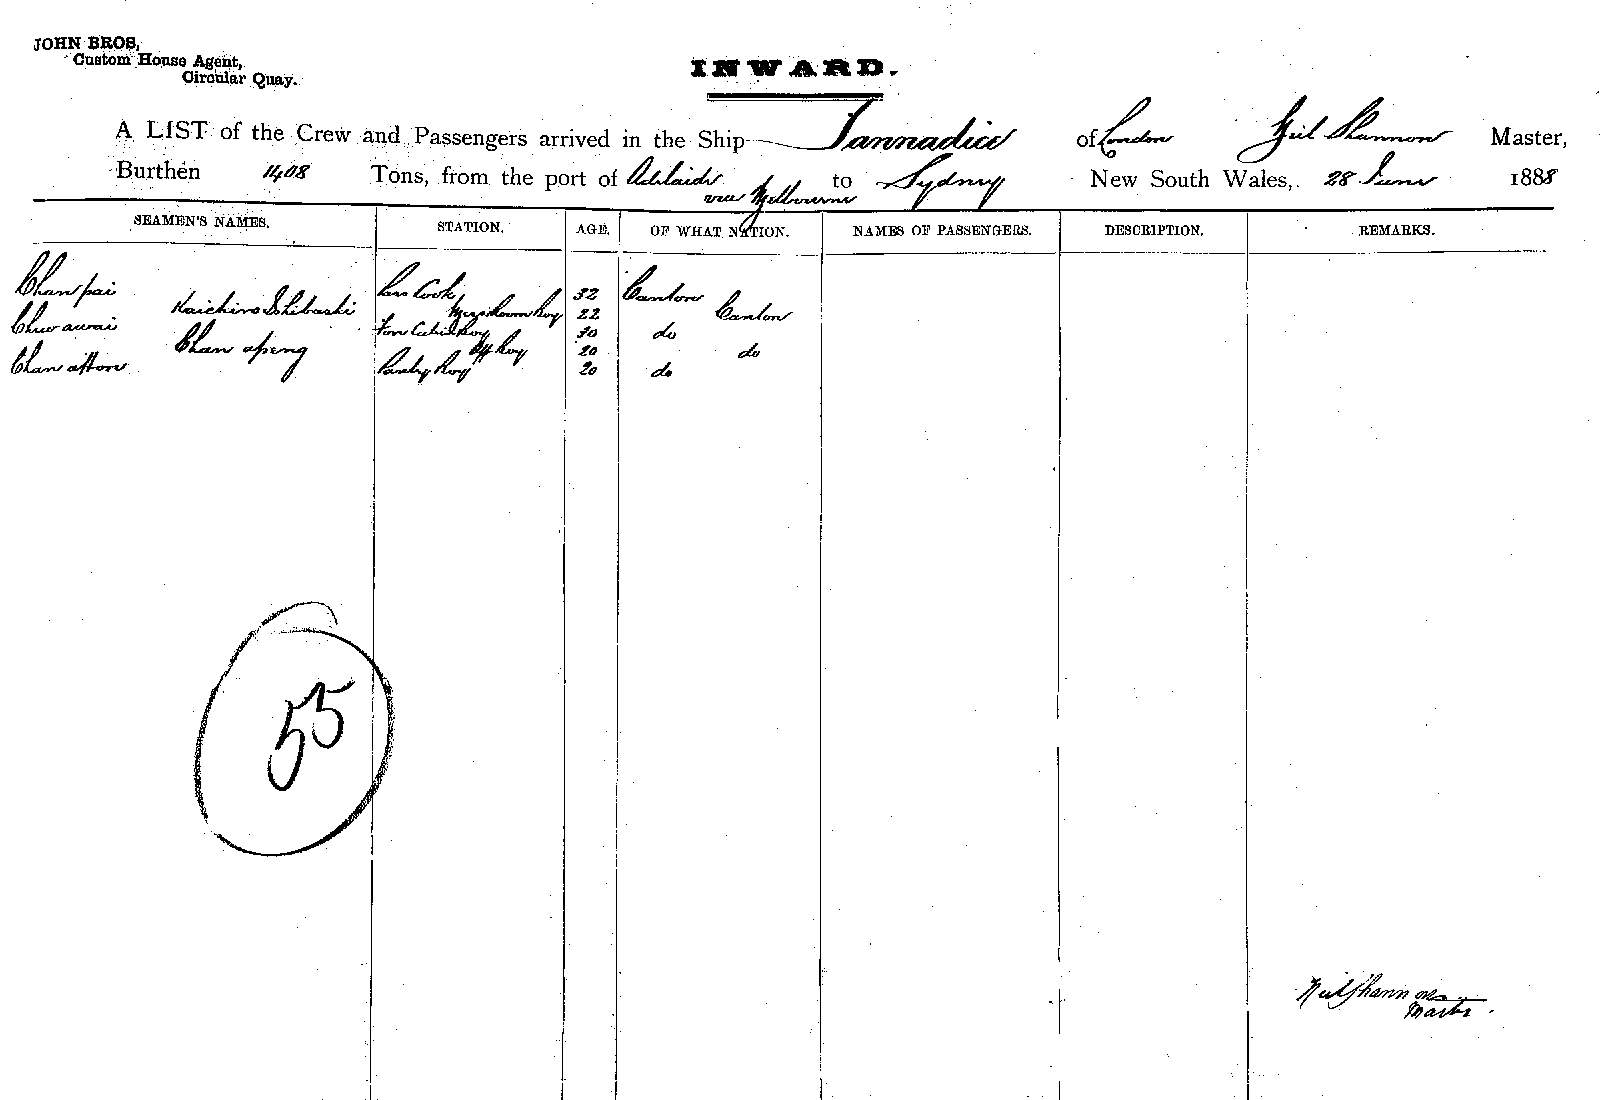 JOHN BROS,
Custom House Agent,
Circular Quay.
INWARD.
A LIST of the Crew and Passengers arrived in the Ship Tannadice of London Neil Shannon Master,
Burthen 1408 Tons, from the port of Adelaide via Melbourne to Sydney New South Wales, 28 June 1888
SEAMEN'S NAMES. STATION. AGE. OF WHAT NATION. NAMES OF PASSENGERS. DESCRIPTION. REMARKS.
Chan pai Cook 32 Canton
Kaichiro Shibashi Messroom Boy 22 Canton
Chuw awai Boy 30 do
Chan apeng Boy 20 do
Chan Pantry Boy 20 do
55
Neil Shannon
Master